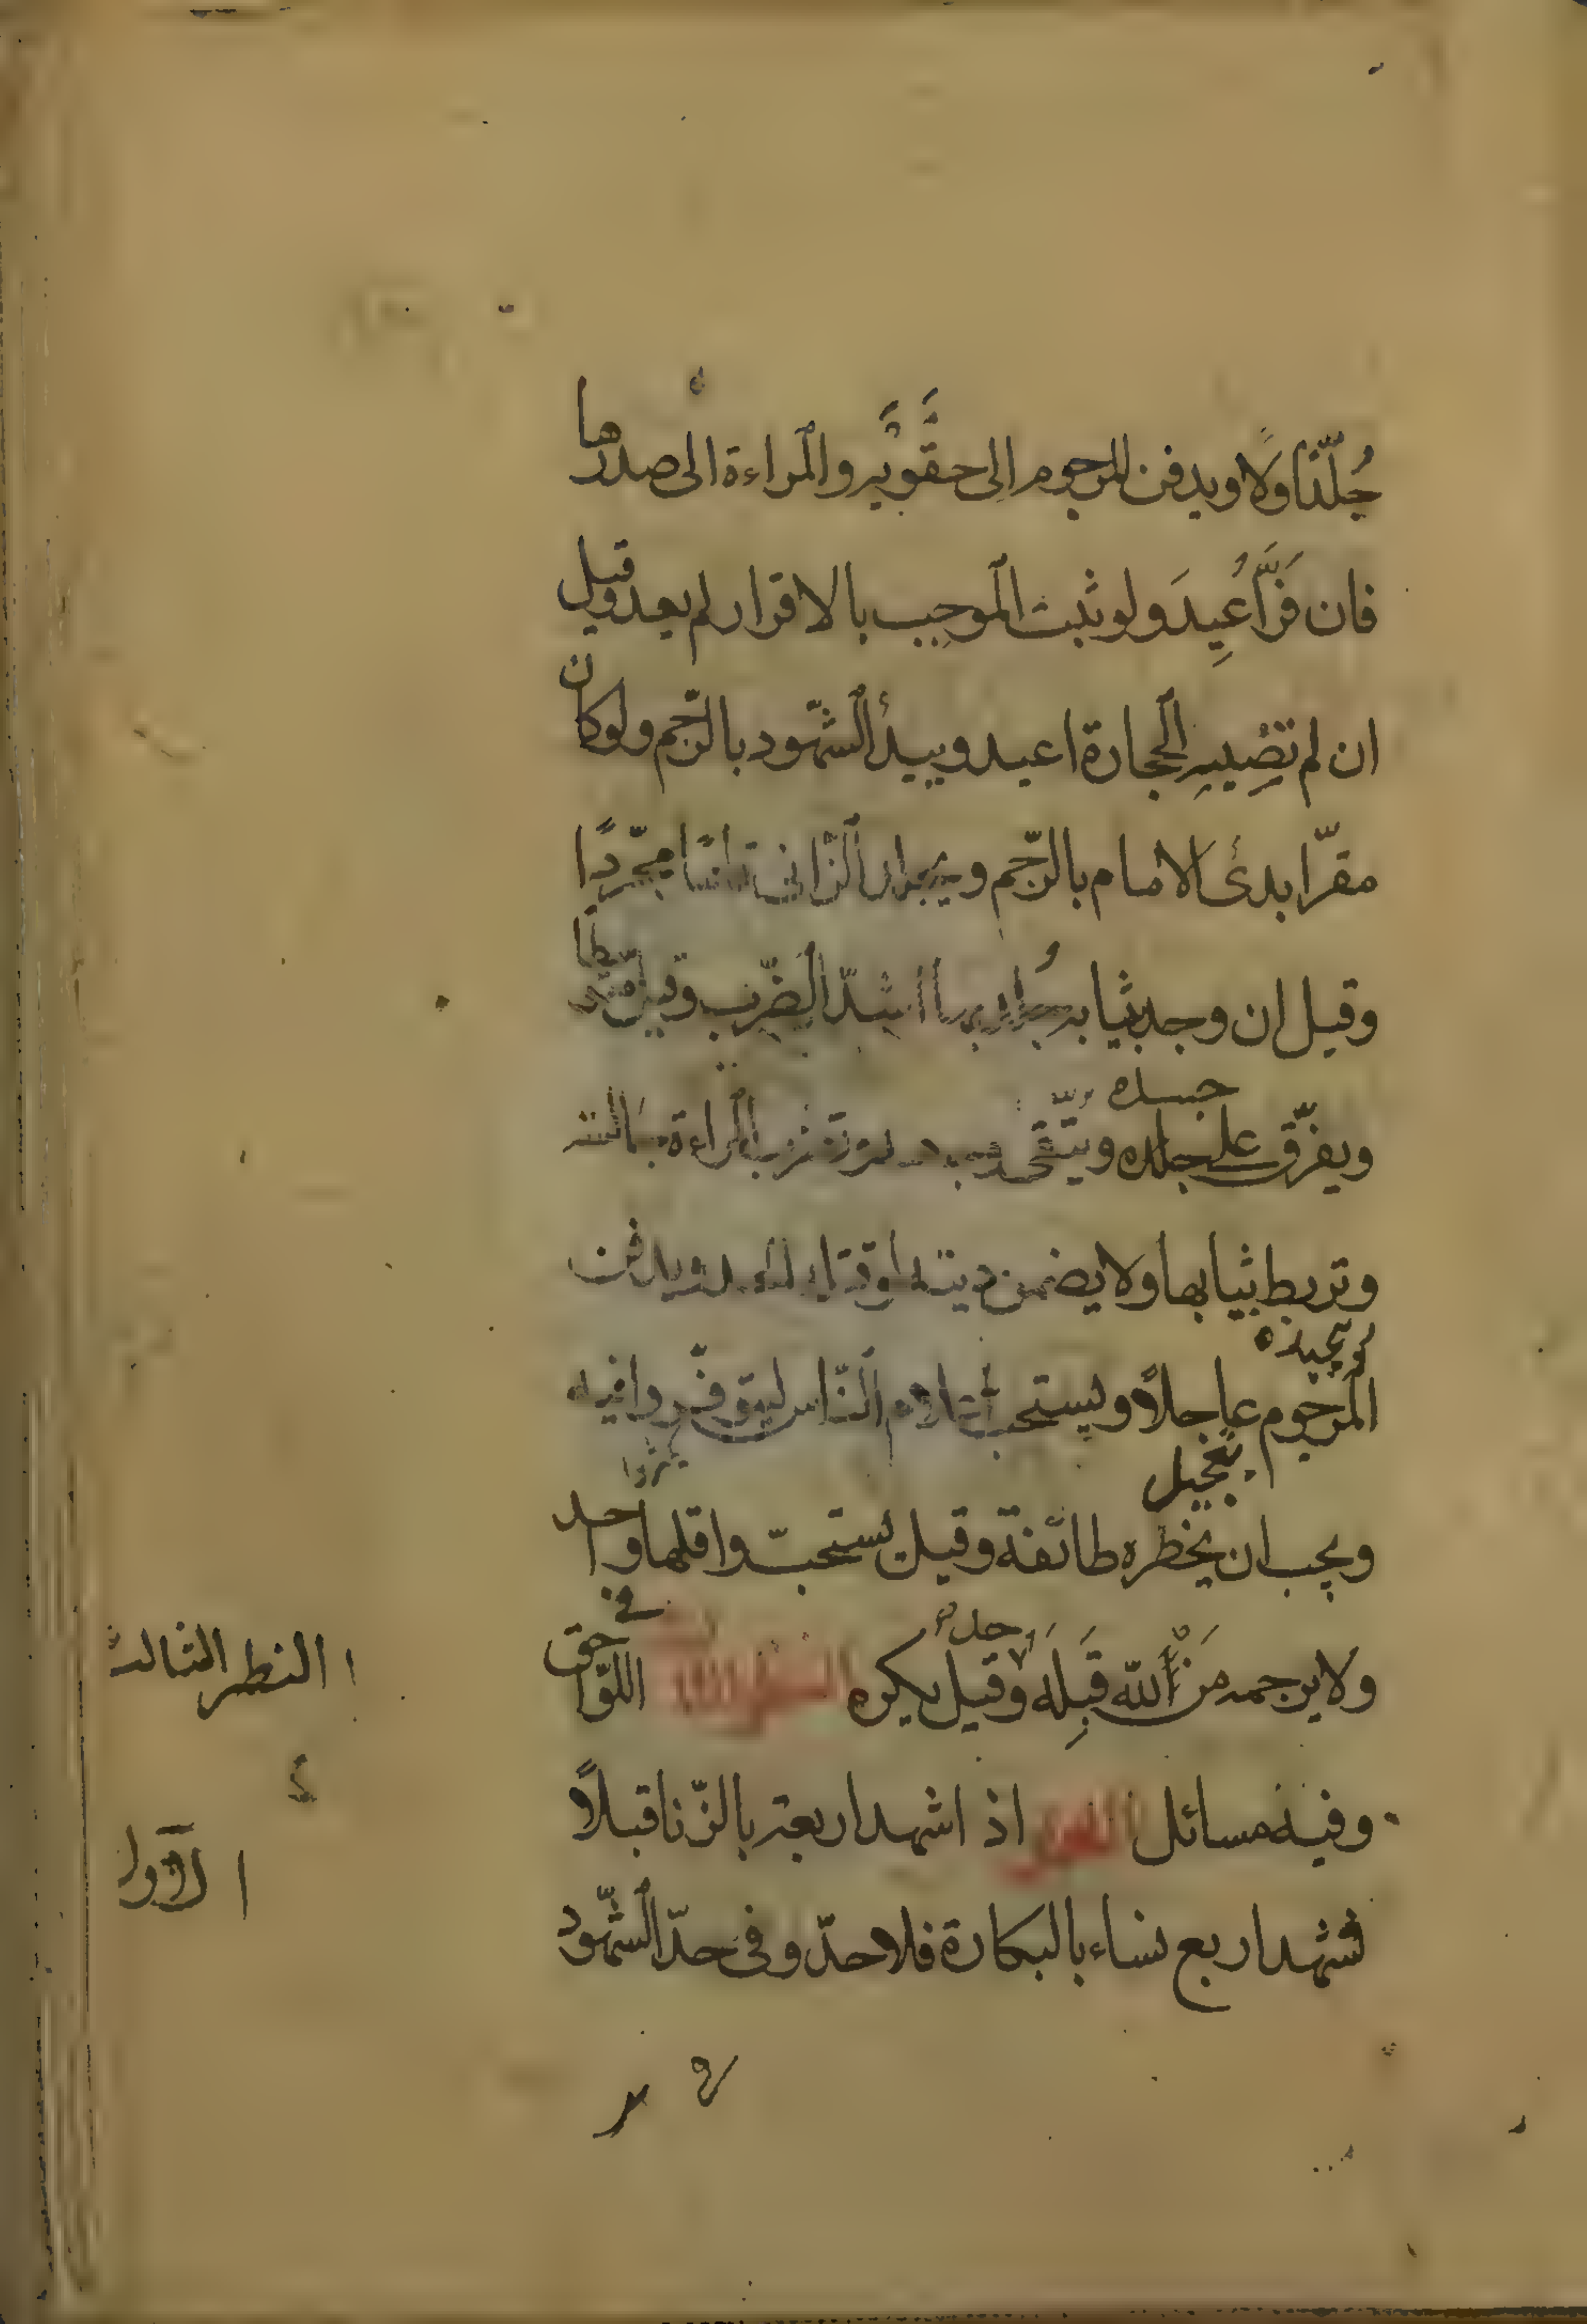 جُلّدًا وَّلًا ويدفن المرجوم الى حقْوَيْه والمراءة الى صدرها
فان فَرَّ اُعِيدَ ولو ثبت الموجب بالاقرار لم يعد وقيل
ان لم تصِبهِ الحجارة اعيد ويبدأ الشّهود بالرّجم ولو كان
مقرّا بدئ الامام بالرّجم ويجلد الزّانى قائمًا مجّردًا
وقيل ان وجد بثيابه جُلد بها اشدّ الضّرب وقيل متوسّطا
جسده
ويفرّق على جلده ويتّقى وتضرب المراءة جالسة
وتربط ثيابها ولا يضمن ديته لو قتله الحد ويدفن
تجهيزه
المرجوم عاجلاً ويستحب اعلام النّاس ليتوفّروا فيه
تعجيل
ويجب ان يخطره طائفة وقيل يستحبّ واقلها واحد
حدّ
ولا يرجمه مَن للّه قِبَلَه وقيل يكره فى اللّواحق
النظر الثالث
وفيه مسائل اذ اشهد اربعة بالزّنا قبلاً
الاولى
فشهد اربع نساء بالبكارة فلا حدّ وفى حدّ الشّهود